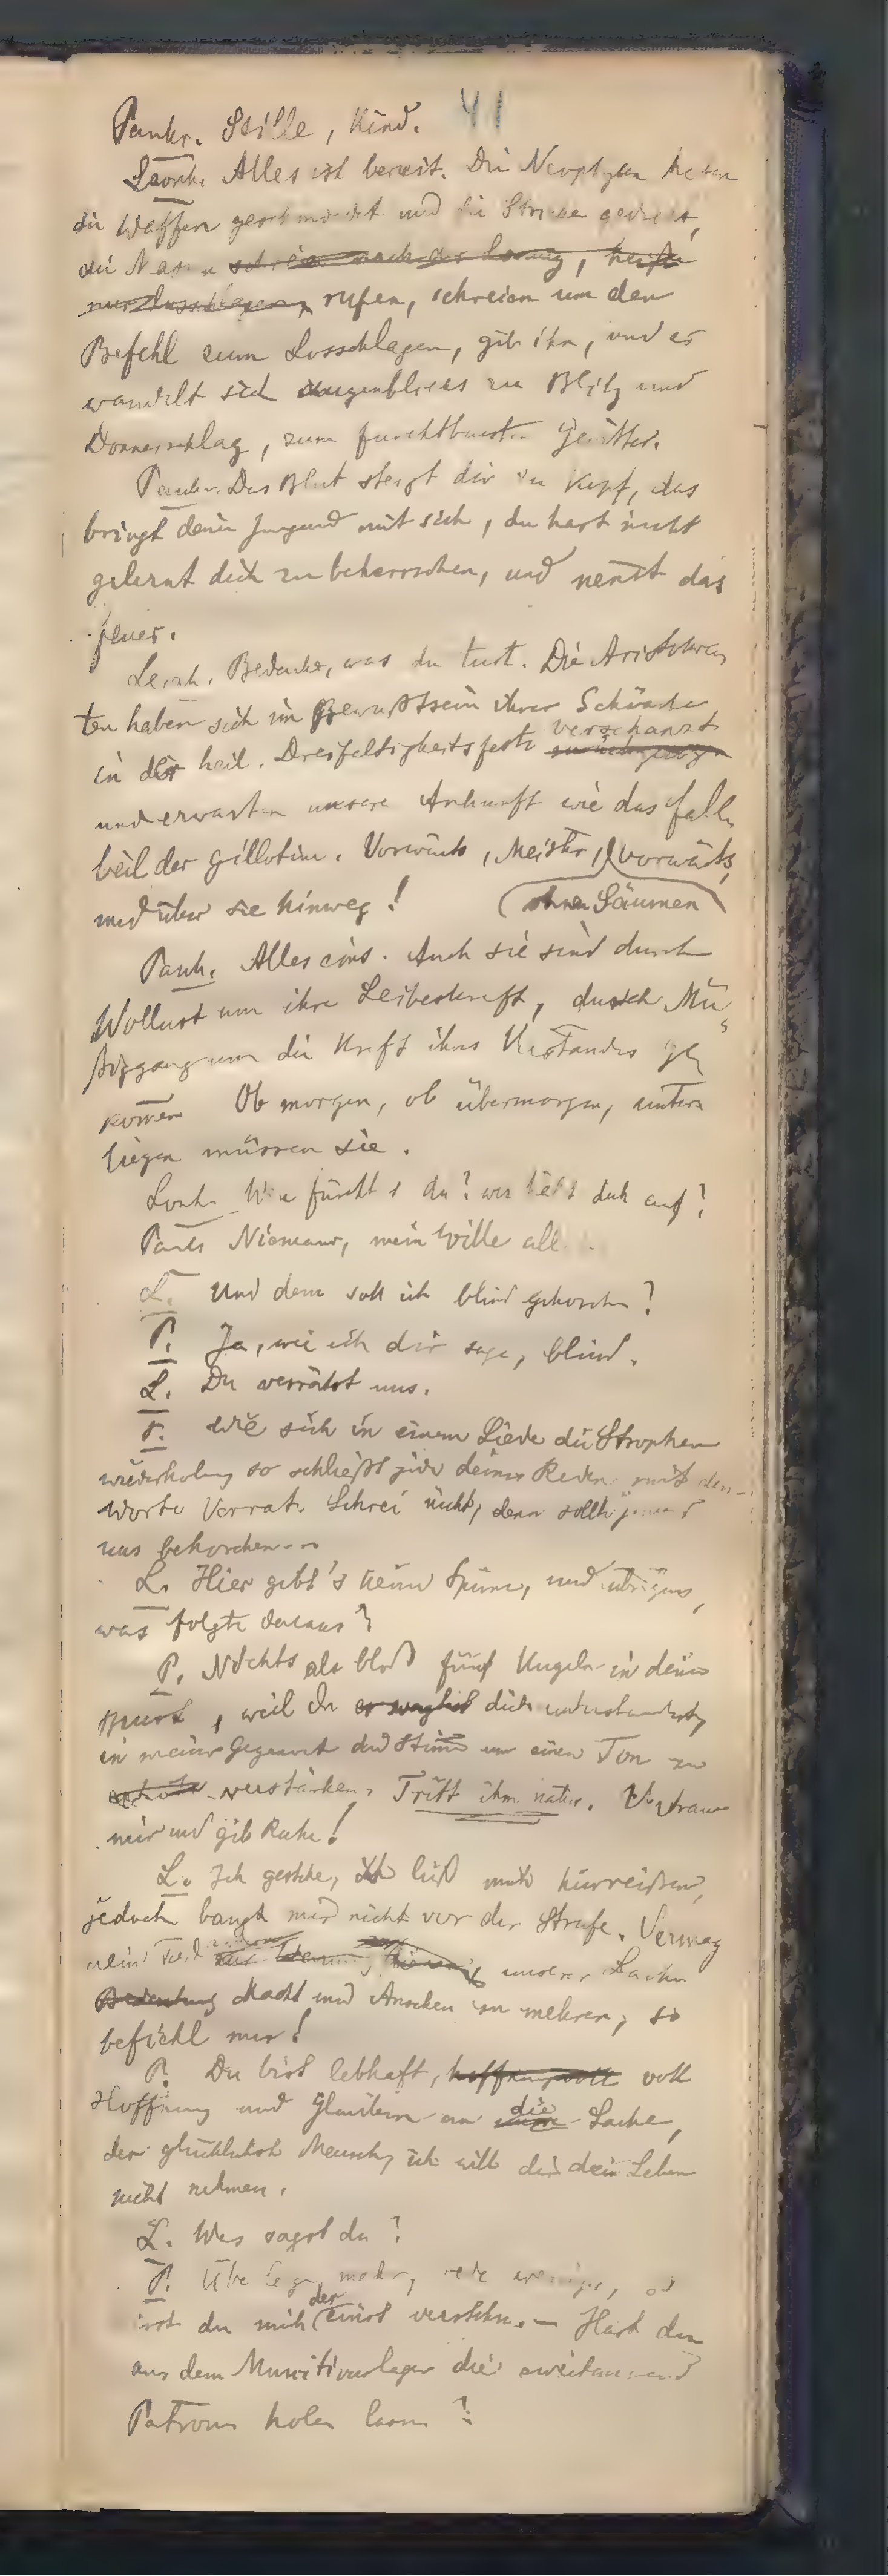 Pankr. Stille, Kind. 41
Leonh. Alles ist bereit. Die Neophyten haben
die Waffen geschmiedet und die Stricke gedreht,
die Massen schreien nach der Losung,
rufen, schreien um den
Befehl zum Losschlagen, gib ihn, und es
wandelt sich augenblicks zu Blitz und
Donnerschlag, zum furchtbarsten Gewitter.
Pankr. Das Blut steigt dir zu Kopf, das
bringt deine Jugend mit sich, du hast nicht
gelernt dich zu beherrschen, und nennst das
Feuer.
Leonh. Bedenke, was du tust. Die Aristokra
ten haben sich im Bewußtsein ihrer Schwäche
verschanzt
in der heil. Dreifaltigkeitsfeste
und erwarten unsere Ankunft wie das Fall
beil der Gillotine. Vorwärts, Meister, vorwärts,
und über sie hinweg! (ohne Säumen
Pank. Alles eins. Auch sie sind durch
Wollust um ihre Leibeskraft, durch Mü
ßiggang um die Kraft ihres Verstandes ge
kommen Ob morgen, ob übermorgen, unter
liegen müssen sie.
Leonh. Wen fürchtest du? wer hält dich auf?
Pank Niemand, mein Wille all
L. Und dem soll ich blind gehorchen?
P. Ja, wie ich dir sage, blind.
L. Du verrätst uns.
P. Wie sich in einem Liede die Strophen
wiederholen, so schließt jede deiner Reden mit dem
Worte Verrat. Schrei nicht, denn sollte jemand
uns behorchen...
L. Hier gibt's keine Spione, und übrigens,
was folgte daraus?
P. Nichts als bloß fünf Kugeln in deine
Brust, weil du dich unterstandest,
in meiner Gegenwart die Stimme um einen Ton zu
verstärken. Tritt ihm näher. Vertraue
mir und gib Ruhe!
L. Ich gestehe, ich ließ mich hinreißen,
jedoch bangt mir nicht vor der Strafe. Vermag
mein Tod unserer Sache
Bedeutung Macht und Ansehen zu mehren, so
befiehl nur!
P. Du bist lebhaft, hoffnungsvoll voll
die
Hoffnung und Glauben an Sache,
der glücklichste Mensch, ich will dir dein Leben
nicht nehmen.
L. Was sagst du?
P. Überlege mehr, rede weniger,
der
du mich einst verstehen. — Hast du
aus dem Munitionslager die zweitausend
Patronen holen lassen?